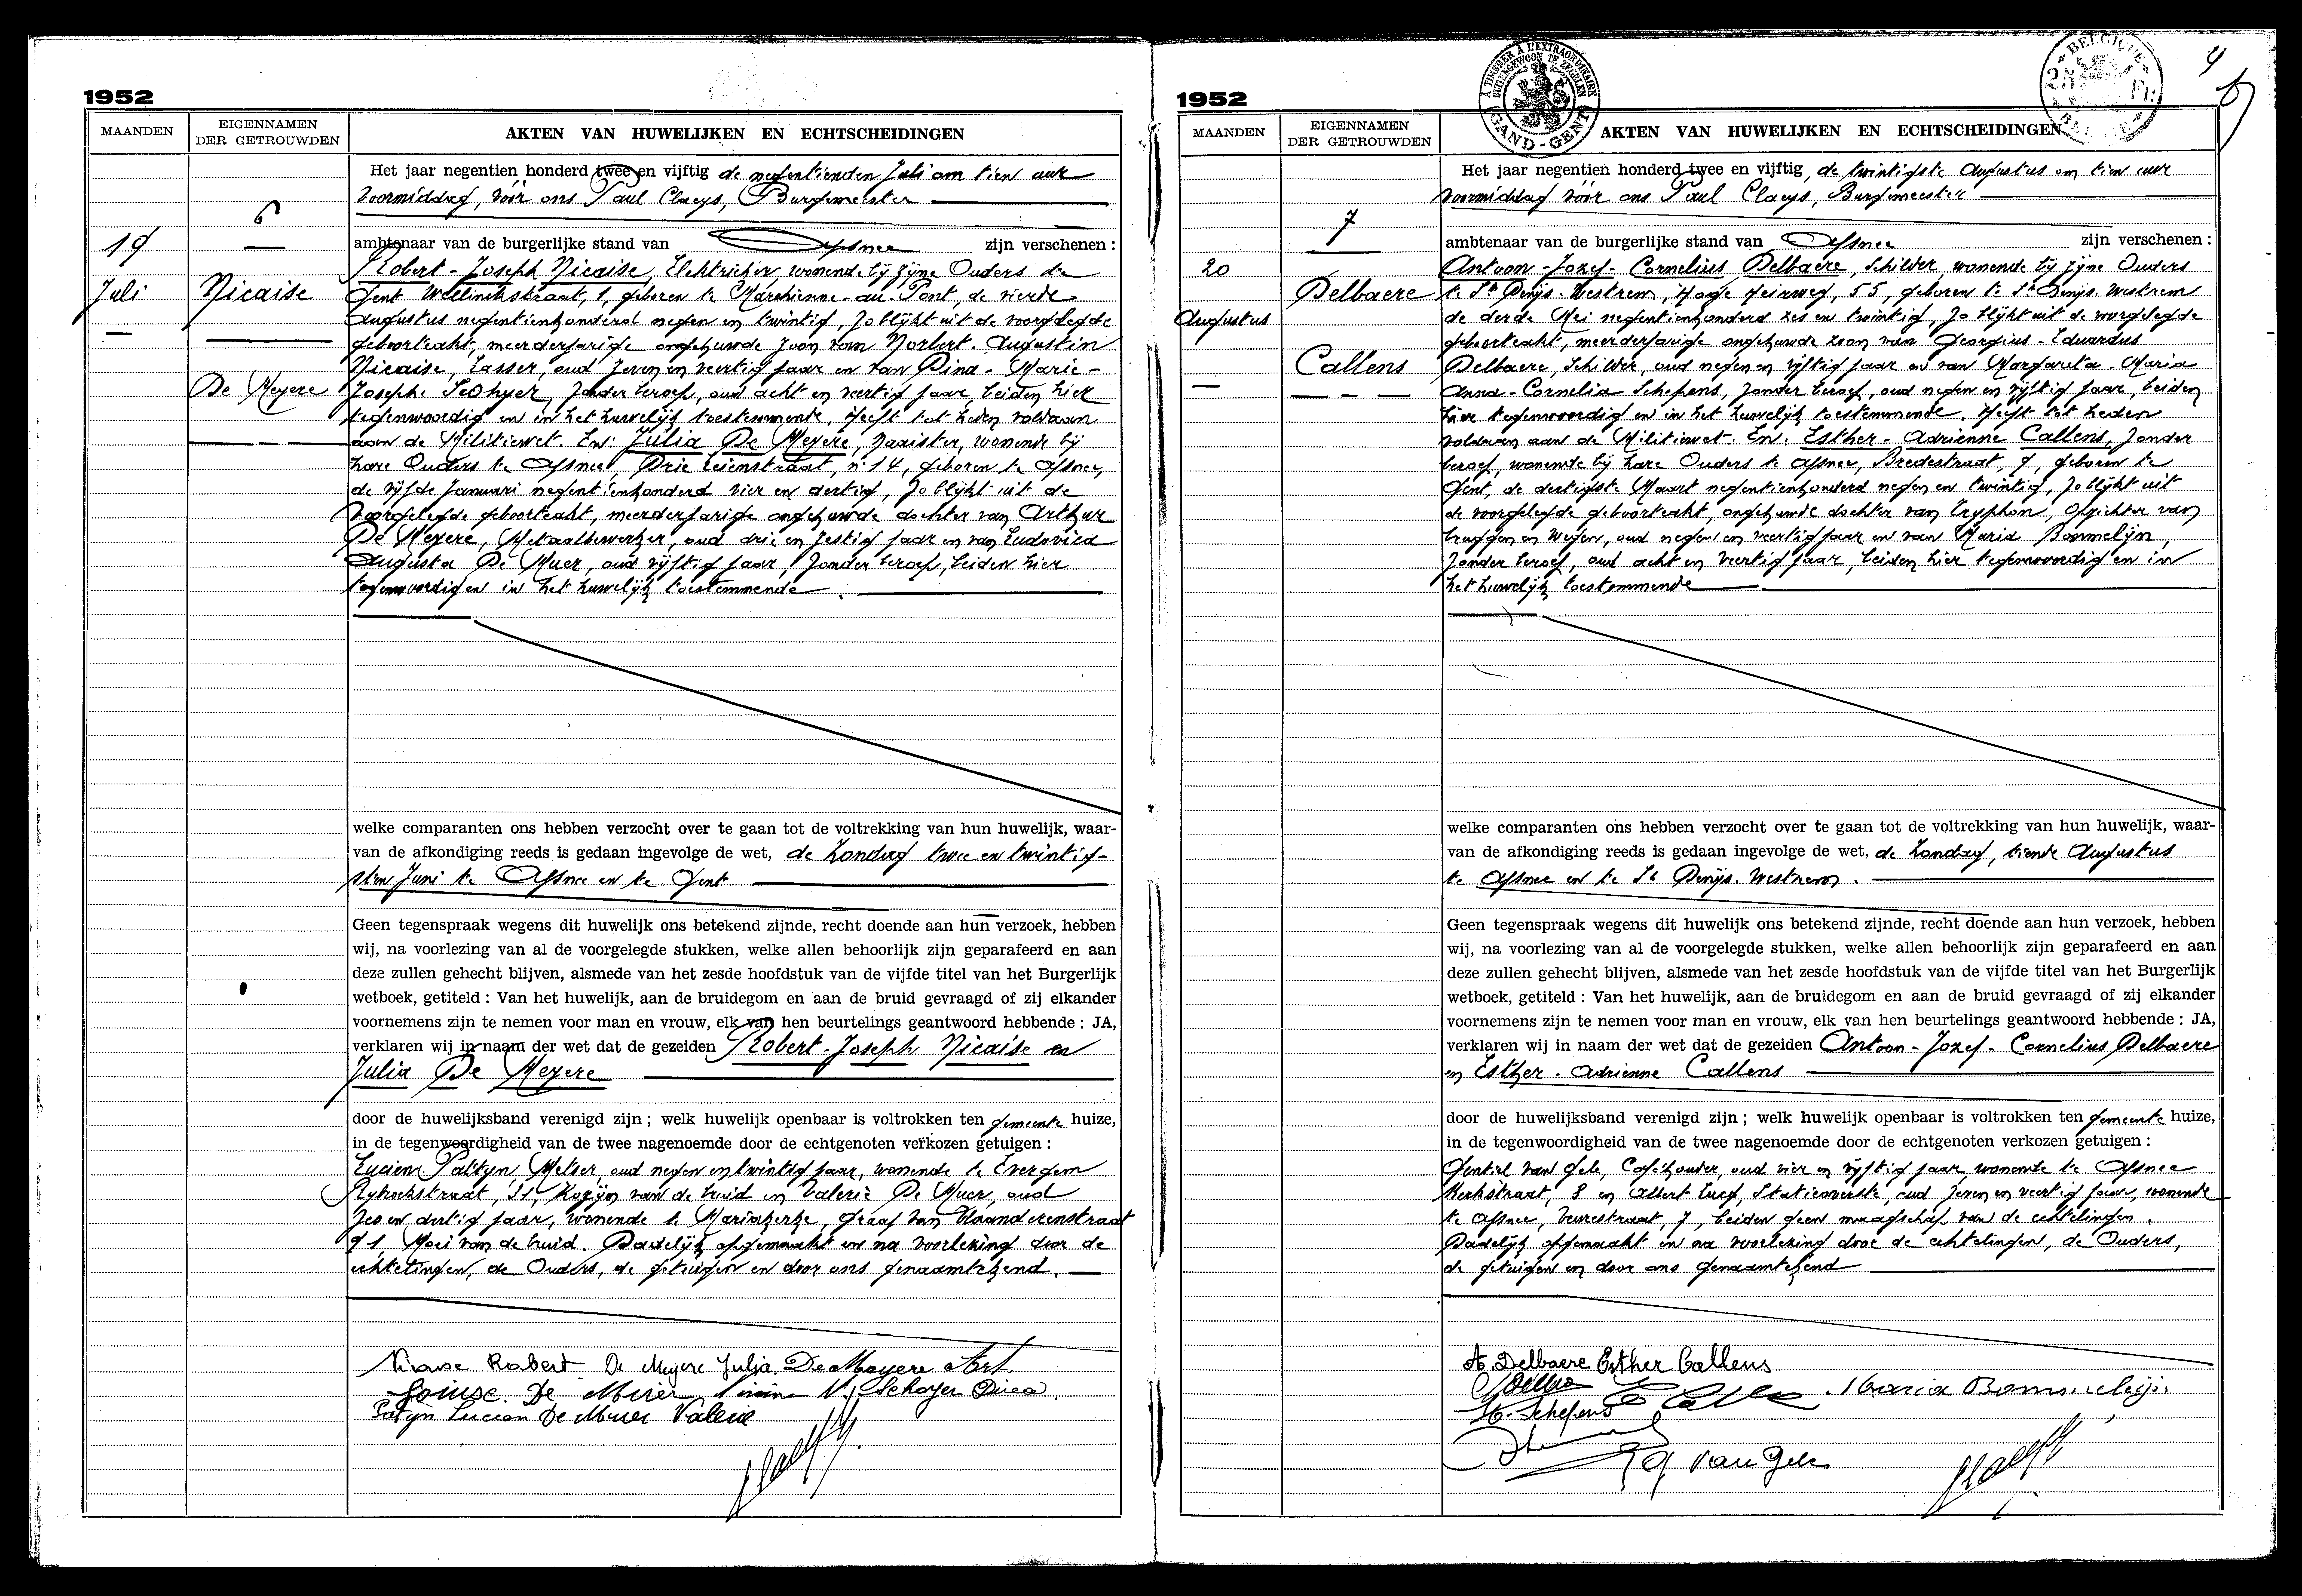 1952
MAANDEN
EIGENNAMEN
DER GETROUWDEN
AKTEN VAN HUWELIJKEN EN ECHTSCHEIDINGEN
6
19
Juli
Nicaise
De Meyere
Het jaar negentien honderd twee en vijftig de negentienden Juli om tien uur
voormiddag, vóór ons Paul Claeys, Burgemeester
ambtenaar van de burgerlijke stand van Afsnee zijn verschenen :
Robert-Joseph Nicaise, Elektrieker, wonende bij zijne Ouders te
Gent Wellinckstraat, 1, geboren te Marchienne-au-Pont, de vierde
Augustus negentienhonderd negen en twintig, zo blijkt uit de voorgelegde
geboorteakt, meerderjarige ongehuwde zoon van Norbert-Augustin
Nicaise, Lasser, oud zeven en veertig jaar en van Dina-Marie-
Josephe, zonder beroep, oud acht en veertig jaar, beiden hier
tegenwoordig en in het huwelijk toestemmende. Heeft tot heden voldaan
aan de Militiewet. En: Julia De Meyere, Naaister, wonende bij
hare Ouders te Afsnee, Drie Leienstraat, n° 14, geboren te Afsnee,
de vijfde Januari negentienhonderd vier en dertig, zo blijkt uit de
voorgelegde geboorteakt, meerderjarige ongehuwde dochter van Arthur
De Meyere, Metaalbewerker, oud drie en zestig jaar en van Ludovica
Augusta De Muer, oud vijftig jaar, zonder beroep, beiden hier
tegenwoordig en in het huwelijk toestemmende.
welke comparanten ons hebben verzocht over te gaan tot de voltrekking van hun huwelijk, waar-
van de afkondiging reeds is gedaan ingevolge de wet, de Zondag twee en twintig-
sten Juni te Afsnee en te Gent
Geen tegenspraak wegens dit huwelijk ons betekend zijnde, recht doende aan hun verzoek, hebben
wij, na voorlezing van al de voorgelegde stukken, welke allen behoorlijk zijn geparafeerd en aan
deze zullen gehecht blijven, alsmede van het zesde hoofdstuk van de vijfde titel van het Burgerlijk
wetboek, getiteld : Van het huwelijk, aan de bruidegom en aan de bruid gevraagd of zij elkander
voornemens zijn te nemen voor man en vrouw, elk van hen beurtelings geantwoord hebbende : JA,
verklaren wij in naam der wet dat de gezeiden Robert-Joseph Nicaise en
Julia De Meyere
door de huwelijksband verenigd zijn ; welk huwelijk openbaar is voltrokken ten gemeente huize,
in de tegenwoordigheid van de twee nagenoemde door de echtgenoten verkozen getuigen :
Lucien Patyn, Metser, oud negen en twintig jaar, wonende te Evergem
, Kozijn van de bruid en Valerie De Muer, oud
zes en dertig jaar, wonende te Mariakerke, Graaf van Vlaanderenstraat
91 Moei van de bruid. Dadelijk opgemaakt en na voorlezing door de
echtelingen, de Ouders, de getuigen en door ons genaamtekend.
Nicaise Robert De Meyere Julja De Meyere Art.
Louise De Muer
Patyn Lucien De Muer Valerie
1952
À TIMBRER À L'EXTRAORDINAIRE
BUITENGEWOON TE ZEGELEN
GAND-GENT
BELGIQUE
25 Fr.
4
MAANDEN
EIGENNAMEN
DER GETROUWDEN
AKTEN VAN HUWELIJKEN EN ECHTSCHEIDINGEN
7
20
Augustus
Delbaere
Callens
Het jaar negentien honderd twee en vijftig, de twintigste Augustus om tien uur
voormiddag vóór ons Paul Claeys, Burgemeester
ambtenaar van de burgerlijke stand van Afsnee zijn verschenen :
Antoon-Jozef-Cornelius Delbaere, Schilder wonende bij zijne Ouders
te St Denijs-Westrem, Hoge Heirweg, 55, geboren te St Denijs-Westrem
de derde Mei negentienhonderd zes en twintig, zo blijkt uit de voorgelegde
geboorteakt, meerderjarige ongehuwde zoon van Georgius-Eduardus
Delbaere, Schilder, oud negen en vijftig jaar en van Margareta-Maria
Anna-Cornelia Schepens, zonder beroep, oud negen en vijftig jaar, beiden
hier tegenwoordig en in het huwelijk toestemmende. Heeft tot heden
voldaan aan de Militiewet. En: Esther-Adrienne Callens, zonder
beroep, wonende bij hare Ouders te Afsnee, Bredestraat, 9, geboren te
Gent, de dertigste Maart negentienhonderd negen en twintig, zo blijkt uit
de voorgelegde geboorteakt, ongehuwde dochter van Tryphon, Opzichter van
bruggen en wegen, oud negen en veertig jaar en van Maria Bommelijn,
zonder beroep, oud acht en veertig jaar, beiden hier tegenwoordig en in
het huwelijk toestemmende.
welke comparanten ons hebben verzocht over te gaan tot de voltrekking van hun huwelijk, waar-
van de afkondiging reeds is gedaan ingevolge de wet, de Zondag, tiende Augustus
te Afsnee en te St Denijs-Westrem.
Geen tegenspraak wegens dit huwelijk ons betekend zijnde, recht doende aan hun verzoek, hebben
wij, na voorlezing van al de voorgelegde stukken, welke allen behoorlijk zijn geparafeerd en aan
deze zullen gehecht blijven, alsmede van het zesde hoofdstuk van de vijfde titel van het Burgerlijk
wetboek, getiteld : Van het huwelijk, aan de bruidegom en aan de bruid gevraagd of zij elkander
voornemens zijn te nemen voor man en vrouw, elk van hen beurtelings geantwoord hebbende : JA,
verklaren wij in naam der wet dat de gezeiden Antoon-Jozef-Cornelius Delbaere
en Esther-Adrienne Callens
door de huwelijksband verenigd zijn ; welk huwelijk openbaar is voltrokken ten gemeente huize,
in de tegenwoordigheid van de twee nagenoemde door de echtgenoten verkozen getuigen :
Gentiel van Gele, Caféhouder, oud vier en vijftig jaar, wonende te Afsnee
Kerkstraat, 8 en Albert, Statieoverste, oud zeven en veertig jaar, wonende
te Afsnee, 7, beiden geen maagschap van de echtelingen.
Dadelijk opgemaakt en na voorlezing door de echtelingen, de Ouders,
de getuigen en door ons genaamtekend
A. Delbaere Esther Callens
Maria Bommelijn
M. Schepens
G Van Gele